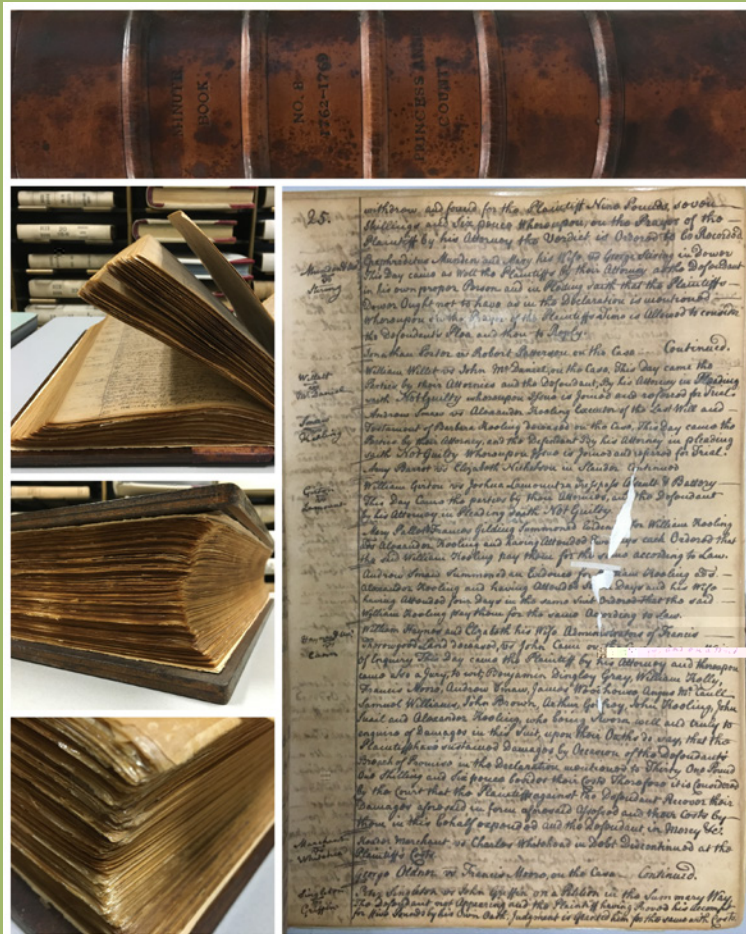 MINUTE
BOOK
NO. 8
1762-1769
PRINCESS ANN
COUNTY
25.
withdraw, and found for the Plaintiff Nine Pounds, seven
Shillings and Six pence Whereupon, on the Prayer of the
Plaintiff by his Attorney the Verdict is Ordered to be Recorded
Munden and Mary his Wife vs George in Dower
This day came as Well the Plaintiffs by their Attorney as the Defendant
in his own proper Person and in Pleading Saith that the Plaintiffs
Dower Ought not to have as in the Declaration is mentioned
Whereupon on the Prayer of the Plaintiffs time is Allowed to consider
the Defendents Plea and then to Reply.
Jonathan vs Robert Patterson, on the Case Continued.
William vs John McDaniel, on the Case, This day came the
Parties by their Attornies and the Defendant, By his Attorney in Pleading
saith Not Guilty whereupon Issue is Joined and referred for Trial
Andrew vs Alexander Keeling Executor of the Last Will and
Testament of Barbara Keeling deceased on the Case, This day came the
Parties by their Attorney, and the Defendant By his Attorney in pleading
saith Not Guilty Whereupon Issue is Joined and referred for Trial.
Amy vs Elizabeth Nicholson in Slander Continued
William vs Joshua Lamount in Trespass Assault & Battery
This day Came the parties by their Attornies, and the Defendant
by his Attorney in Pleading saith Not Guilty.
Mary Frances Gilding Summoned for William Keeling
ads Alexander Keeling and having Attended days each Ordered that
the said William Keeling pay them for the same according to Law.
Andrew Summoned an Evidence for William Keeling ads.
Alexander Keeling and having Attended days and his Wife
having Attended four days in the same Suit Ordered that the said
William Keeling Pay them for the same According to Law.
William Haynes and Elizabeth his Wife Administrators of Francis
Thorowgood Land deceased, vs John
of Enquiry This day came the Plaintiff by his Attorney and thereupon
came also a Jury, to wit, Benjamin Dingley Gray, William Kelly,
Francis Moore, Andrew James Woodhouse, Angus
Samuel Williams, John Brown, Arthur John Keeling, John
and Alexander Keeling, who being Sworn well and truly to
enquire of damages in this Suit, upon their Oaths do say, that the
Plaintiffs have sustained Damages by Occasion of the Defendants
Breach of Promise in the Declaration mentioned to Thirty One Pound
Six Shillings and Six pence besides their Costs Therefore it is Considered
by the Court that the Plaintiffs against the Defendant Recover their
Damages aforesaid in form aforesaid Assessed and their Costs by
them in this behalf expended and the Defendant in Mercy &c.
Merchant vs Charles Whitehead in Debt Discontinued at the
Plaintiffs Costs.
George Oldner vs Francis Moore, on the Case Continued.
Peter Singleton vs John Griffin on a Petition in the Summary Way
The defendant not Appearing and the Plaintiff having Proved his Account
for Nine Pounds by his Own Oath. Judgment is him for the same with Costs